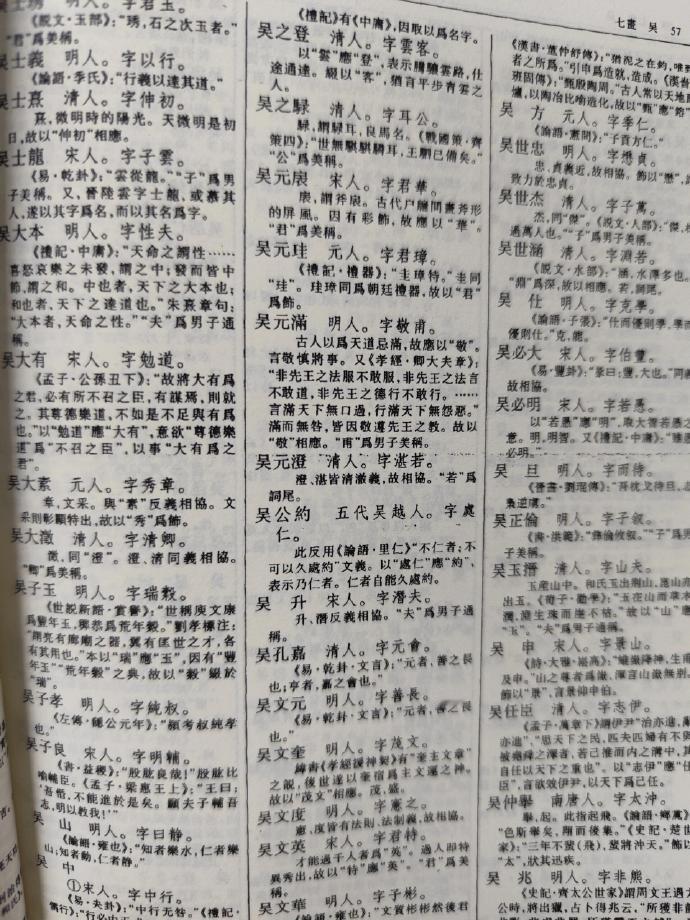 七畫 吳 57
吳士琇 明人。字君玉。
《說文·玉部》:"琇,石之次玉者。"
"君"爲美稱。
吳士義 明人。字以行。
《論語·季氏》:"行義以達其道。"
吳士熹 清人。字仲初。
熹,微明時的陽光。天微明是初
日,故以"仲初"相應。
吳士龍 宋人。字子雲。
《易·乾卦》:"雲從龍。""子"爲男
子美稱。又,晉陸雲字士龍,或慕其
人,遂以其字爲名,而以其名爲字。
吳大本 明人。字性夫。
《禮記·中庸》:"天命之謂性……
喜怒哀樂之未發,謂之中;發而皆中
節,謂之和。中也者,天下之大本也;
和也者,天下之達道也。"朱熹章句:
"大本者,天命之性。""夫"爲男子通
稱。
吳大有 宋人。字勉道。
《孟子·公孫丑下》:"故將大有爲
之君,必有所不召之臣,有謀焉,則就
之。其尊德樂道,不如是不足與有爲
也。"以"勉道"應"大有",意欲"尊德樂
道"爲"不召之臣",以事"大有爲之
君"。
吳大素 元人。字秀章。
章,文采。與"素"反義相協。文
采則彰顯特出,故以"秀"爲飾。
吳大澂 清人。字清卿。
澂,同"澄"。澄、清同義相協。
"卿"爲美稱。
吳子玉 明人。字瑞穀。
《世說新語·賞譽》:"世稱庾文康
爲豐年玉,穉恭爲荒年穀。"劉孝標注:
"翔亮有廊廟之器,翼有匡世之才,各
有其用也。"本以"瑞"應"玉",因有"豐
年玉""荒年穀"之典,故以"穀"綴於
"瑞"。
吳子孝 明人。字純叔。
《左傳·隱公元年》:"潁考叔純孝
也。"
吳子良 宋人。字明輔。
《書·益稷》:"股肱良哉!"股肱比
喻輔臣。《孟子·梁惠王上》:"王曰:
'吾惛,不能進於是矣。願夫子輔吾
志,明以教我!'"
吳 山 明人。字曰静。
《論語·雍也》:"知者樂水,仁者樂
山;知者動,仁者静。"
吳 中
①宋人。字中行。
《易·夬卦》:"中行无咎。"《禮記·
《禮記》有《中庸》,因取以爲名字。
吳之登 清人。字雲客。
以"雲"應"登",表示騰驤雲路,仕
途通達。綴以"客",猶言平步青雲之
人。
吳之騄 清人。字耳公。
騄,謂騄耳,良馬名。《戰國策·齊
策四》:"世無騏驥騄耳,王駟已備矣。"
"公"爲美稱。
吳元扆 宋人。字君華。
扆,謂斧扆。古代户牖間畫斧形
的屏風。因有彩飾,故應以"華"。
"君"爲美稱。
吳元珪 元人。字君璋。
《禮記·禮器》:"圭璋特。"圭同
"珪"。珪璋同爲朝廷禮器,故以"君"
爲飾。
吳元滿 明人。字敬甫。
古人以爲天道忌滿,故應以"敬"。
言敬慎將事。又《孝經·卿大夫章》:
"非先王之法服不敢服,非先王之法言
不敢道,非先王之德行不敢行。……
言滿天下無口過,行滿天下無怨惡。"
滿而無咎,皆因敬遵先王之教。故以
"敬"相應。"甫"爲男子美稱。
吳元澄 清人。字湛若。
澄、湛皆有清澈義,故相協。"若"爲
詞尾。
吳公約 五代吳越人。字處
仁。
此反用《論語·里仁》"不仁者;不
可以久處約"文義。以"處仁"應"約",
表示乃仁者。仁者自能久處約。
吳 升 宋人。字潛夫。
升、潛反義相協。"夫"爲男子通
稱。
吳孔嘉 清人。字元會。
《易·乾卦·文言》:"元者,善之長
也;亨者,嘉之會也。"
吳文元 明人。字善長。
《易·乾卦·文言》:"元者,善之長
也。"
吳文奎 明人。字茂文。
緯書《孝經援神契》有"奎主文章"
之説,後世遂以奎宿爲主文運之神。
故以"茂文"相應。茂,盛。
吳文度 明人。字憲之。
憲、度皆有法則、法制義,故相協。
吳文英 宋人。字君特。
才能過千人者爲"英"。過人即特
異秀出,故以"特"應"英"。"君"爲美
稱。
吳文華 明人。字子彬。
《論語·雍也》:"文質彬彬然後君
《漢書·董仲舒傳》:"猶泥之在鈞,唯甄
者之所爲。"引申爲就造,造成。《漢書·
班固傳》:"甄殷陶周。"古人常以天地爲
爐,以陶冶比喻造化,故以"甄"應"鎔"
吳 方 元人。字季仁。
吳世忠 明人。字懋貞。
忠、貞義近,故相協。飾以"懋",
致力於忠貞。
吳世杰 清人。字子萬。
杰,同"傑"。《説文·人部》:"傑,
過萬人也。""子"爲男子美稱。
吳世涵 清人。字淵若。
《説文·水部》:"涵,水澤多也。"
"淵"爲深,故以相應。若,詞尾。
吳 仕 明人。字克學。
《論語·子張》:"仕而優則學,學而
優則仕。"克,能。
吳必大 宋人。字伯豐。
《易·豐卦》:"彖曰:豐,大也。"同義
故相協。
吳必明 宋人。字若愚。
以"若愚"應"明",取大智若愚之
意。明,明智。又《禮記·中庸》:"雖愚
必明。"
吳 旦 明人。字而待。
《晉書·劉琨傳》:"吾枕戈待旦,志
梟逆虜。"
吳正倫 明人。字子叙。
《書·洪範》:"彝倫攸叙。""子"爲男
子美稱。
吳玉搢 清人。字山夫。
玉産山中。和氏玉出荆山,崑山亦
出玉。《荀子·勸學》:"玉在山而草木
潤,淵生珠而崖不枯。"故以"山"應
"玉"。"夫"爲男子通稱。
吳 申 宋人。字景山。
《詩·大雅·崧高》:"維嶽降神,生甫
及申。"
飾以"景",言景仰申伯。
吳任臣 清人。字志伊。
《孟子·萬章下》謂伊尹"治亦進,亂
亦進","思天下之民,匹夫匹婦有不與
被堯舜之澤者,若己推而内之溝中,其
自任以天下之重也"。以"志伊"應"任
臣",言欲效伊尹,以天下爲己任。
吳仲舉 南唐人。字太沖。
舉,起。此指起飛。《論語·鄉黨》:
"色斯舉矣,翔而後集。"《史記·楚世
家》:"三年不蜚(飛),蜚將沖天。"飾以
"太",狀其迅疾。
吳 兆 明人。字非熊。
《史記·齊太公世家》謂周文王遇太
公時,將出獵,占卜得兆云,"所獲非龍